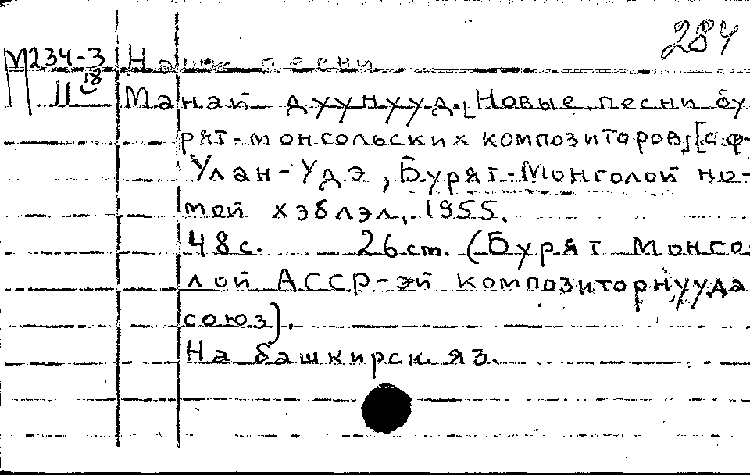 284
М234-3 Наши песни
18
11 Манай дуунууд. [Новые песни бу-
рят-монгольских композиторов].
Улан-Удэ, Бурят-Монголой но-
мой хэблэл, 1955.
48 с. 26 см. (Бурят Монго-
лой АССР-эй композиторнууда
союз).
На башкирск. яз.